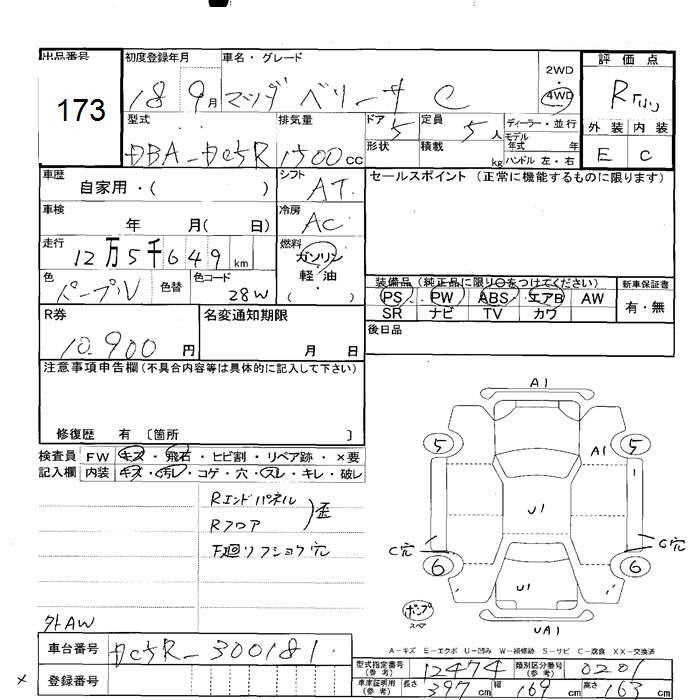 出品番号 初度登録年月 車名・グレード 評価点
173 18年9月 マツダ ベリーサ C 2WD 4WD R
型式 排気量 ドア 5 定員 5人 ディーラー・並行 外装 内装
DBA-DC5R 1500cc 形状 積載 kg モデル年式 年 ハンドル 左・右 E C
車歴 自家用・( ) シフト AT セールスポイント (正常に機能するものに限ります)
車検 年 月( 日) 冷房 AC
走行 12万5千649km 燃料 ガソリン 軽油 ( ・ )
色 パープルV 色替 色コード 28W
装備品 (純正品に限り○をつけてください) 新車保証書
PS PW ABS エアB AW 有・無
SR ナビ TV カワ
R券 10.900円 名変通知期限 月 日 後日品
注意事項申告欄(不具合内容等は具体的に記入して下さい)
修復歴 有 〔箇所 〕
検査員 FW キズ・飛石・ヒビ割・リペア跡・×要
記入欄 内装 キズ・汚レ・コゲ・穴・スレ・キレ・破レ
Rエンドパネル
Rフロア 歪
下廻リフショウ穴
A1
5 5
A1
U1
C穴 C穴
6 6
U1
ポンプ
スペア
UA1
外AW
A-キズ E-エクボ U-凹み W-補修跡 S-サビ C-腐食 XX-交換済
車台番号 DC5R-300181
登録番号
型式指定番号(参考) 12474 類別区分番号(参考) 0201
車庫証明用(参考) 長さ 397cm 幅 169cm 高さ 163cm
×